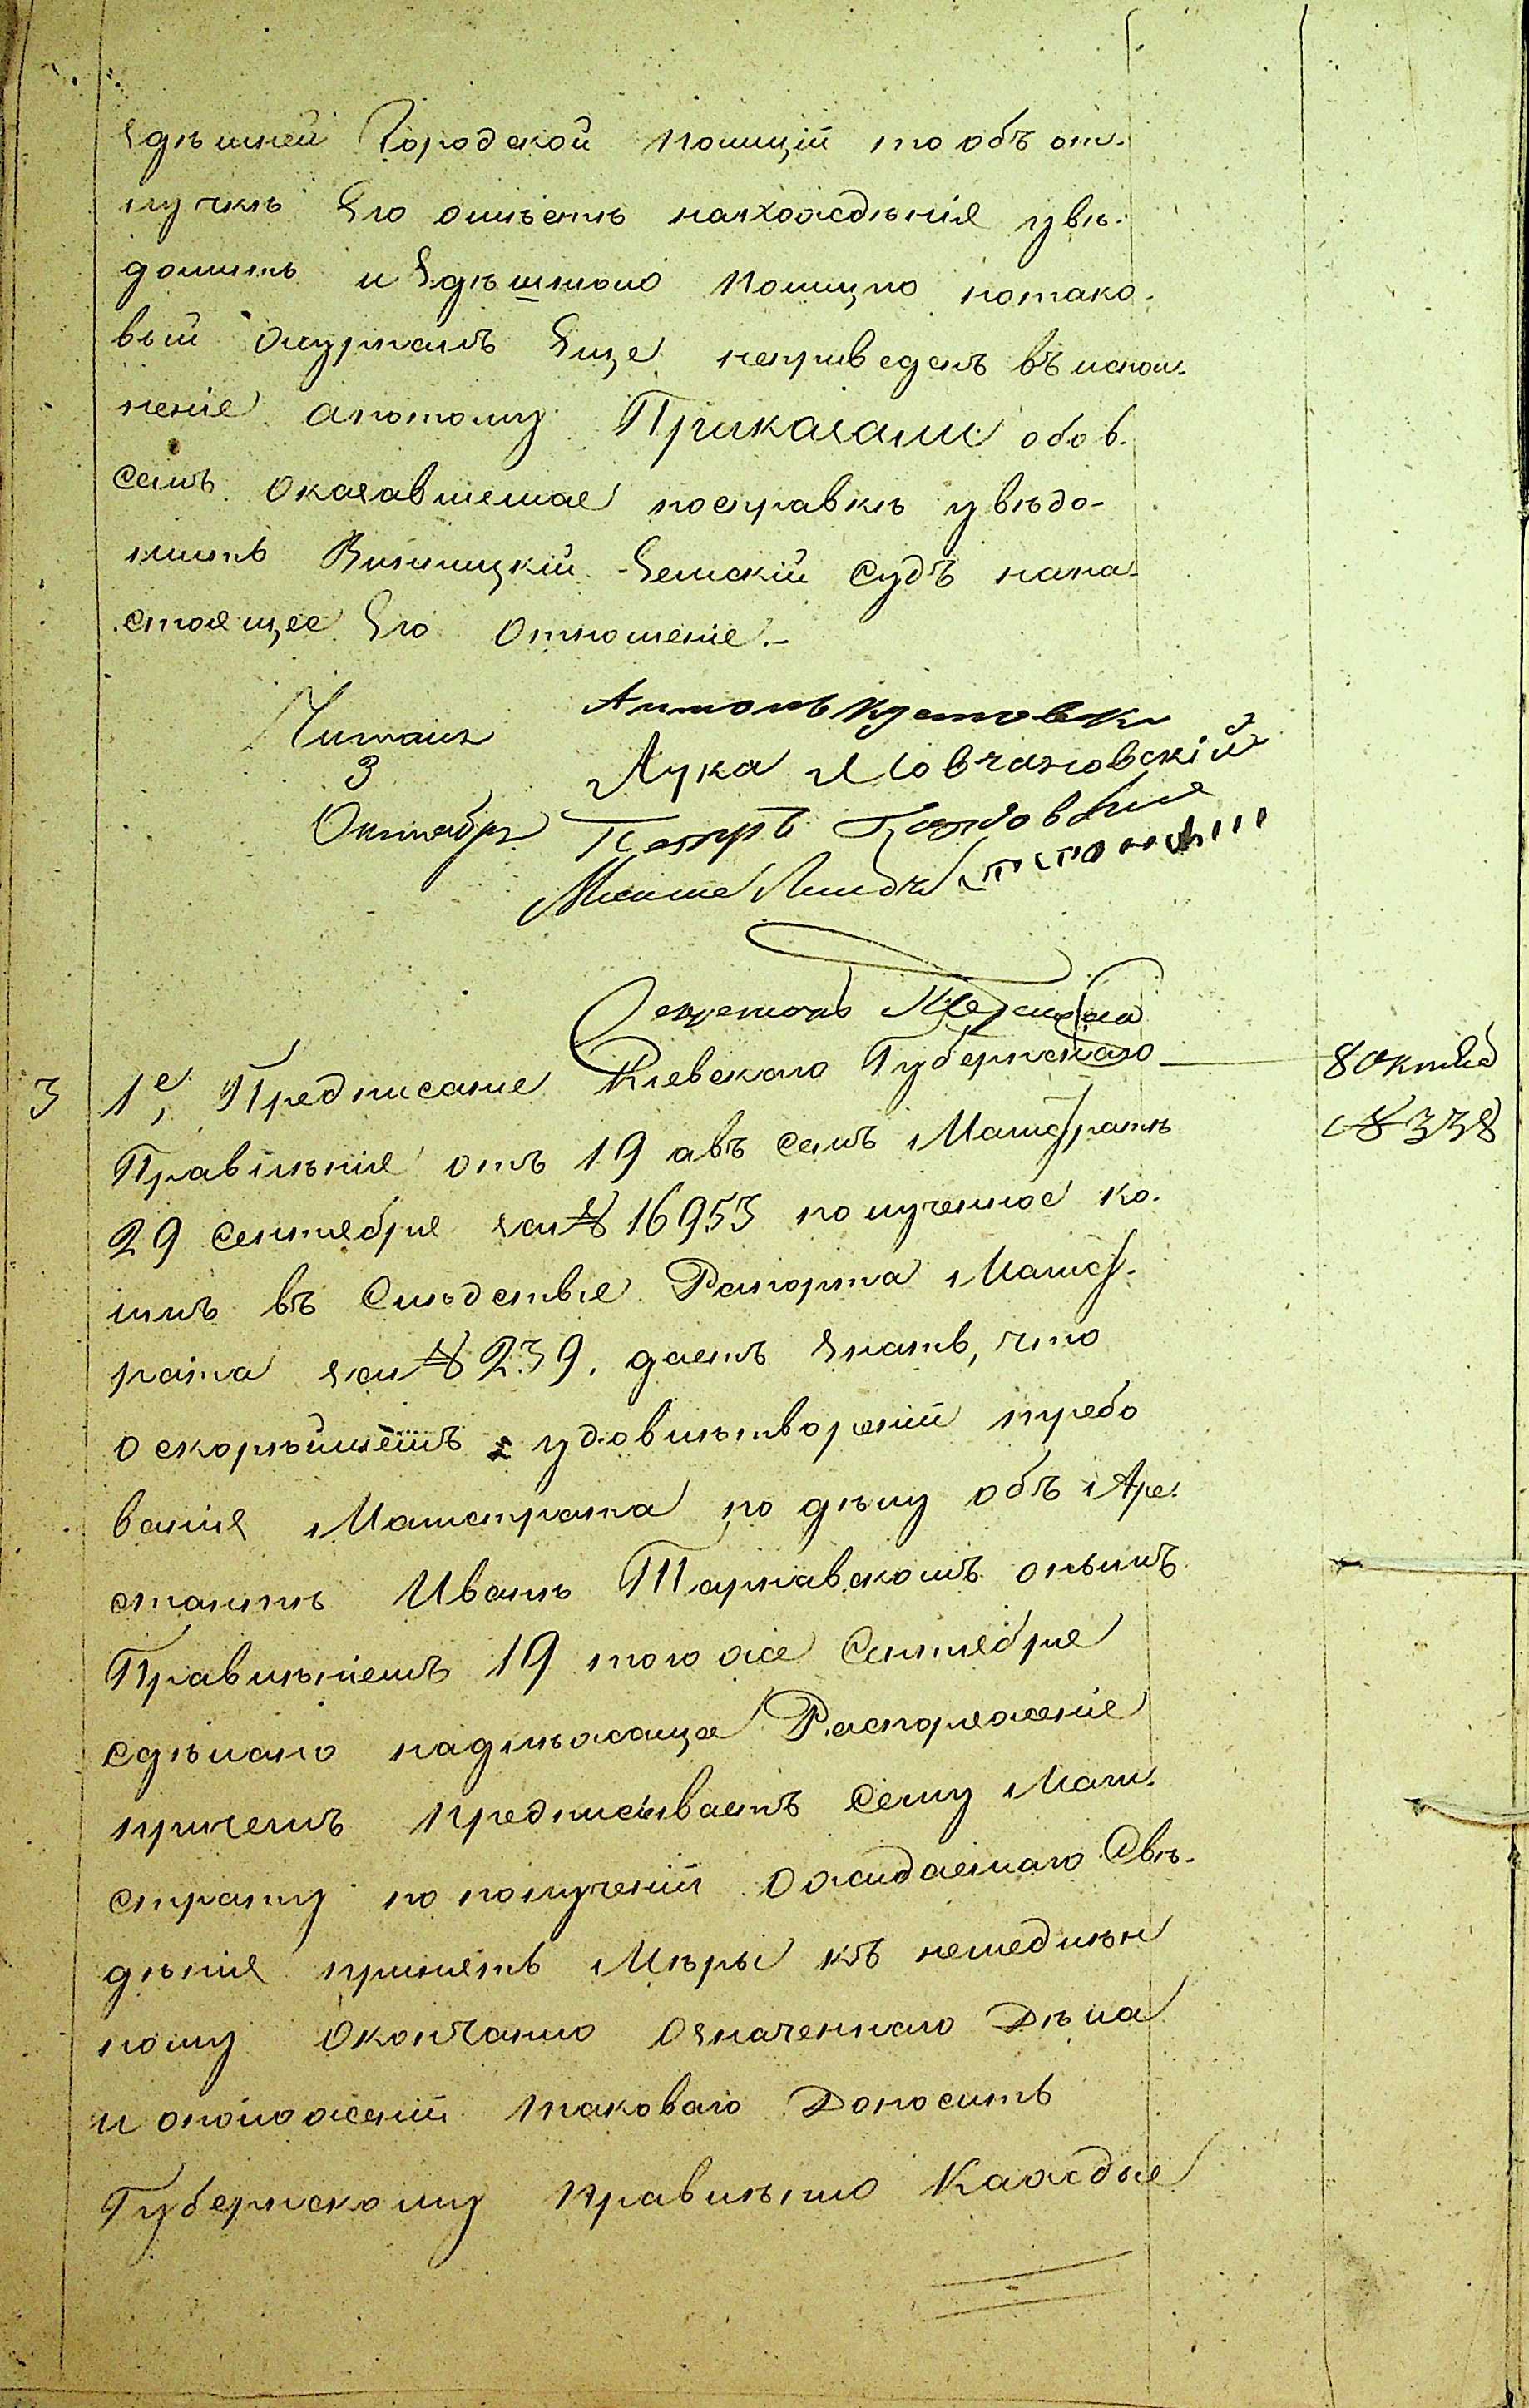 здѣшней Городской полицій то объ от-
лучкѣ Его отмѣстѣ нахождѣнія увѣ-
домить и Здѣшнюю полицію потако-
вый журналъ Еще неприведенъ въ испол-
неніе апотому Приказали обов-
семъ оказавшемся посправкѣ увѣдо-
мить Винницкій Земскій Судъ нана-
стоящее Его отношеніе.-
Читалъ
3
Октября
Антонъ
Лука Мовчановскій
Петръ
Мошко
Секретарь
3
1е, Предписаніе Кіевскаго Губернскаго
8 октяб
№ 338
Правлѣнія отъ 19 авъ семъ Магистратѣ
29 Сентября за № 16953 полученное ко-
имъ въ Слѣдствіе Рапорта Магист-
рата за № 239. даетъ знать, что
оскорѣйшемъ удовлѣтвореній требо
ванія Магистрата по дѣлу объ Аре-
стантѣ Иванѣ Тарнавскомъ онымъ
Правлѣніемъ 19 того же Сентября
сдѣлано надлѣжащее Распоряженіе
причемъ предписываетъ Сему Маги-
страту по полученій Ожидаемаго Свѣ-
дѣнія принять Мѣры къ немедлѣн
ному Окончанію Означеннаго Дѣла
и оположеній таковаго Доносить
Губернскому правлѣнію Каждые